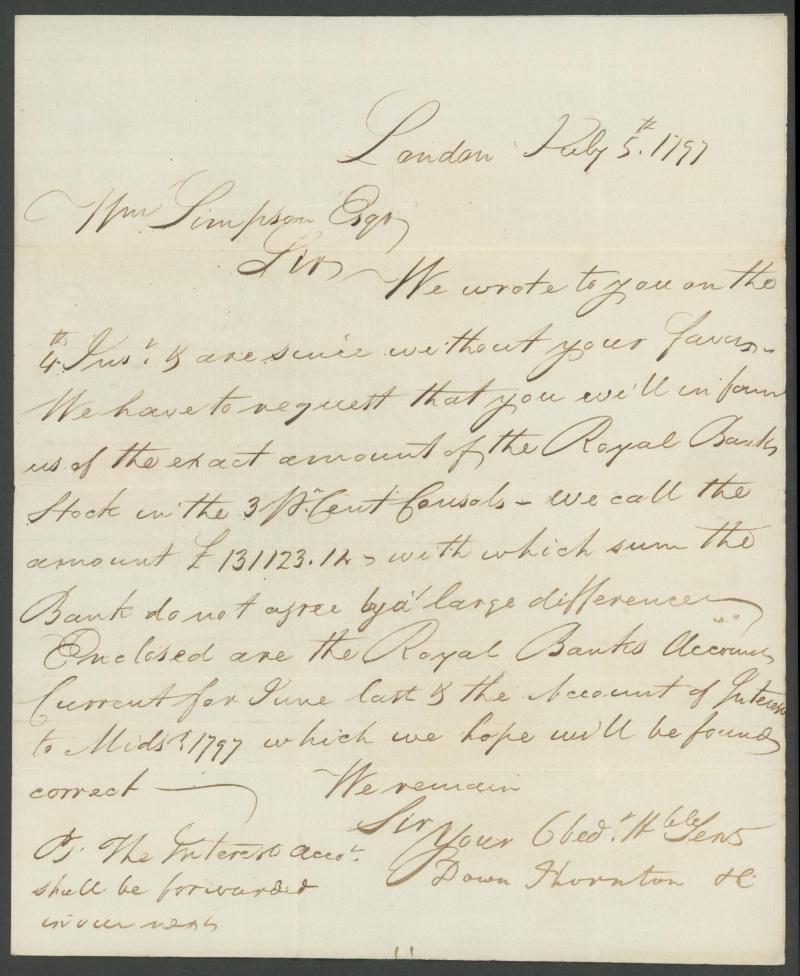 London July 5th. 1797
Wm Simpson Esqr
Sir We wrote to you on the
4th. Inst. & are since without your favors -
We have to request that you will inform
us of the exact amount of the Royal Banks
Stock in the 3 Pr. Cent Consols - We call the
amount £131123.14 , with which sum the
Bank do not agree by a large difference
Enclosed are the Royal Banks Account
Current for June last & the Account of Interest
to Midsr. 1797 which we hope will be found
correct — We remain
Sir
Your Obedt. Hble Servts
Down Thornton &c
Ps. The Interest Accot.
shall be forwarded
in our next